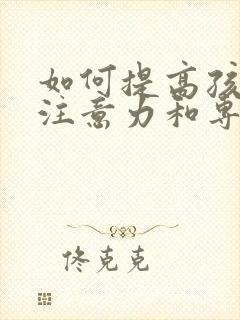 如何提高孩
注意力和专
佟克克